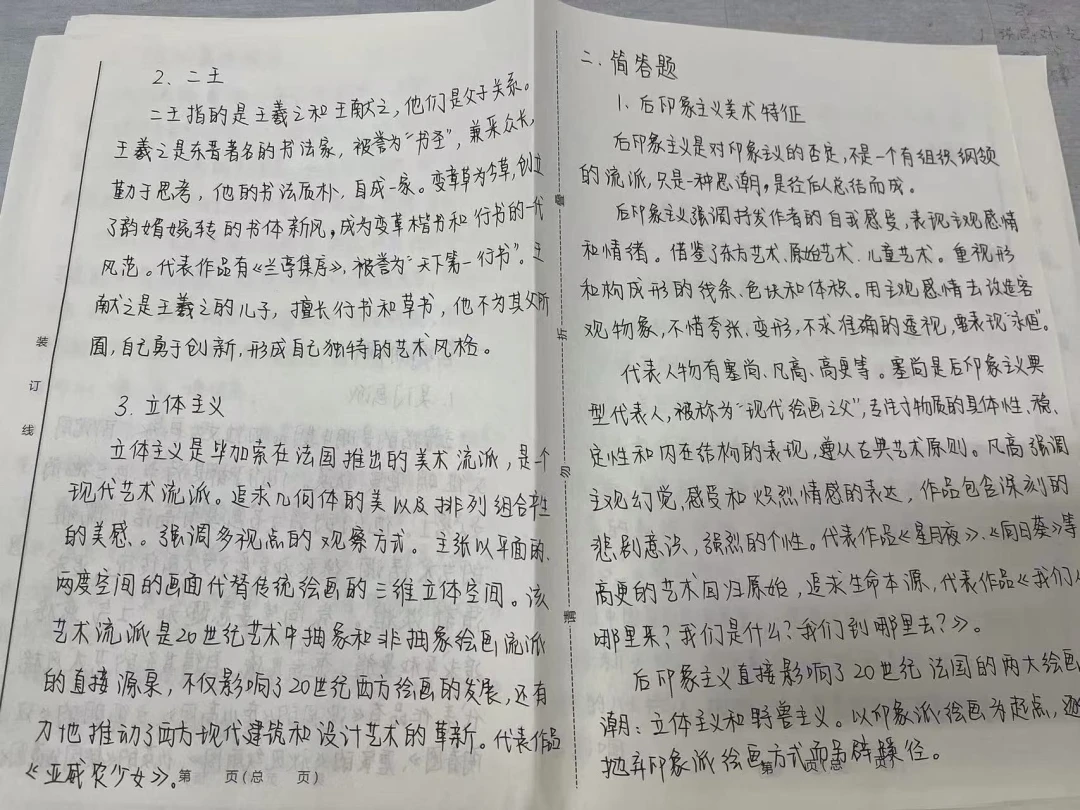 2、二王
二王指的是王羲之和王献之，他们是父子关系。
王羲之是东晋著名的书法家，被誉为“书圣”，兼采众长，
勤于思考，他的书法质朴，自成一家。变章草为今草，创立
了韵媚婉转的书体新风，成为变革楷书和行书的一代
风范。代表作品有《兰亭集序》，被誉为“天下第一行书”。王
献之是王羲之的儿子，擅长行书和草书，他不为其父所
囿，自己勇于创新，形成自己独特的艺术风格。
3、立体主义
立体主义是毕加索在法国推出的美术流派，是个
现代艺术流派。追求几何体的美以及排列组合产生
的美感。强调多视点的观察方式。主张以平面的、
两度空间的画面代替传统绘画的三维立体空间。该
艺术流派是20世纪艺术中抽象和非抽象绘画流派
的直接源泉，不仅影响了20世纪西方绘画的发展，还有
力地推动了西方现代建筑和设计艺术的革新。代表作品
《亚威农少女》。
第 页(总 页)
装
订
线
二、简答题
1、后印象主义美术特征
后印象主义是对印象主义的否定，不是一个有组织纲领
的流派，只是一种思潮，是经后人总结而成。
后印象主义强调抒发作者的自我感受，表现主观感情
和情绪。借鉴了东方艺术、原始艺术、儿童艺术。重视形
和构成形的线条、色块和体积。用主观感情去改造客
观物象，不惜夸张、变形，不求准确的透视，要表现“永恒”。
代表人物有塞尚、凡高、高更等。塞尚是后印象主义典
型代表人，被称为“现代绘画之父”，专注于物质的具体性、稳
定性和内在结构的表现，遵从古典艺术原则。凡高强调
主观幻觉，感受和炽烈情感的表达，作品包含深刻的
悲剧意识、强烈的个性。代表作品《星月夜》、《向日葵》等
高更的艺术回归原始，追求生命本源，代表作品《我们从
哪里来？我们是什么？我们到哪里去？》。
后印象主义直接影响了20世纪法国的两大绘画
潮：立体主义和野兽主义。以印象派绘画为起点，逐
抛弃印象派绘画方式而另辟蹊径。
折
勿